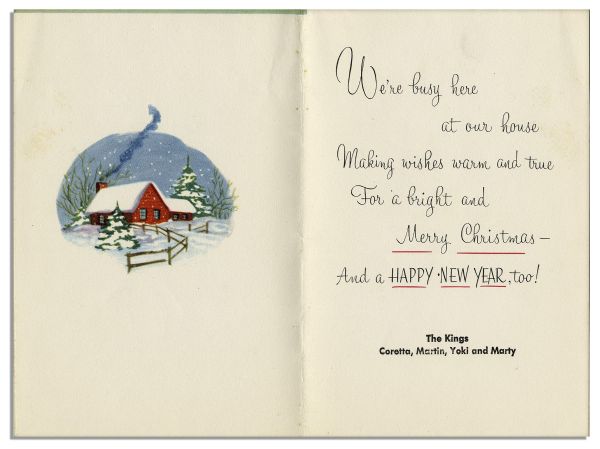 We're busy here
at our house
Making wishes warm and true
For a bright and
Merry Christmas—
And a HAPPY NEW YEAR, too!
The Kings
Coretta, Martin, Yoki and Marty